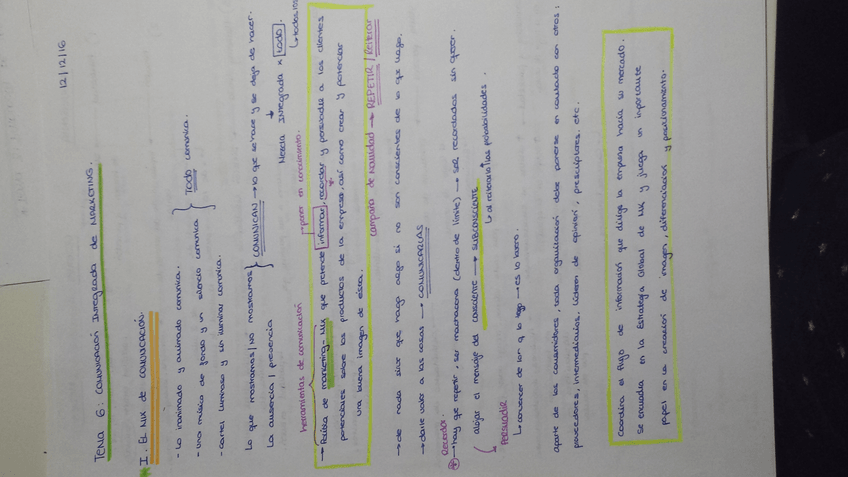 12/12/16
TEMA 6: COMUNICACIÓN INTEGRADA DE MARKETING.
I. EL MIX DE COMUNICACIÓN.
- Lo inanimado y animado comunica.
- una música de fondo y un silencio comunica
- cartel luminoso y sin iluminar comunica.
TODO comunica.
Lo que mostramos/NO mostramos
La ausencia / presencia
COMUNICAN → lo que se hace y se deja de hacer.
Necesita INTEGRADA x todo.
herramientas de comunicación
→ poner en conocimiento.
→ Política de marketing-Mix que pretende informar, recordar y persuadir a los clientes
potenciales sobre los productos de la empresa, así como crear y potenciar
una buena imagen de ésta.
campaña de Navidad → REPETIR / Reiterar
→ de nada sirve que haga algo si no son conscientes de lo que hago.
→ darle valor a las cosas → COMUNICARLAS
Recordar
→ hay que repetir, ser machacona (dentro de límite) → ser recordados sin querer.
alojar el mensaje del consciente → SUBCONSCIENTE
↳ al reiterarlo ↑ las probabilidades.
Persuadir
↳ convencer de ser a lo largo → es lo bueno.
aparte de los consumidores, toda organización debe ponerse en contacto con otros:
proveedores, intermediarios, líderes de opinión, prescriptores, etc.
Coordina el flujo de información que dirige la empresa hacia su mercado.
Se encuadra en la Estrategia Global de MK y juega un importante
papel en la creación de imagen, diferenciación y posicionamiento.